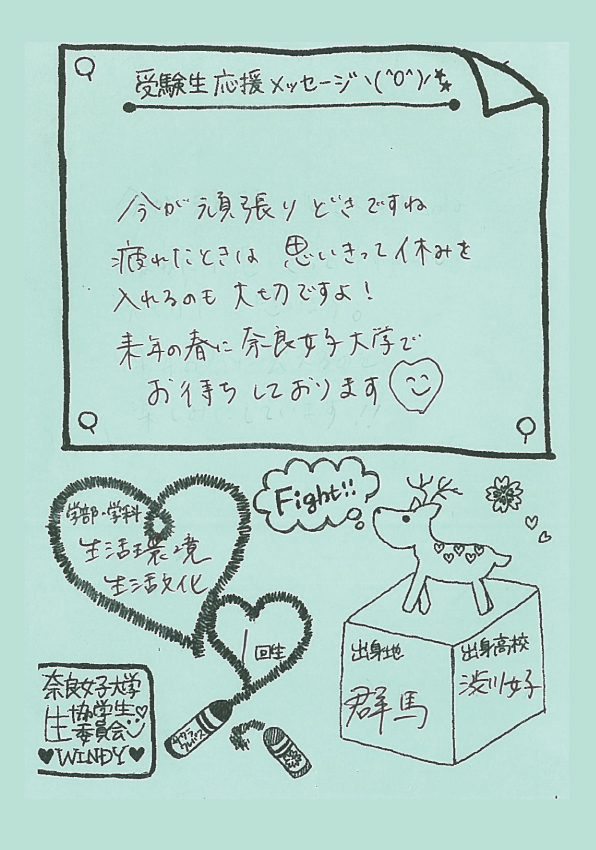 受験生応援メッセージヽ(^0^)ノ
今が頑張りどきですね
疲れたときは 思いきって休みを
入れるのも大切ですよ!
来年の春に奈良女子大学で
お待ちしております
Fight!!
学部・学科
生活環境
生活文化
1回生
出身地
群馬
出身高校
渋川女子
奈良女子大学
生協学生
委員会
♥WINDY♥